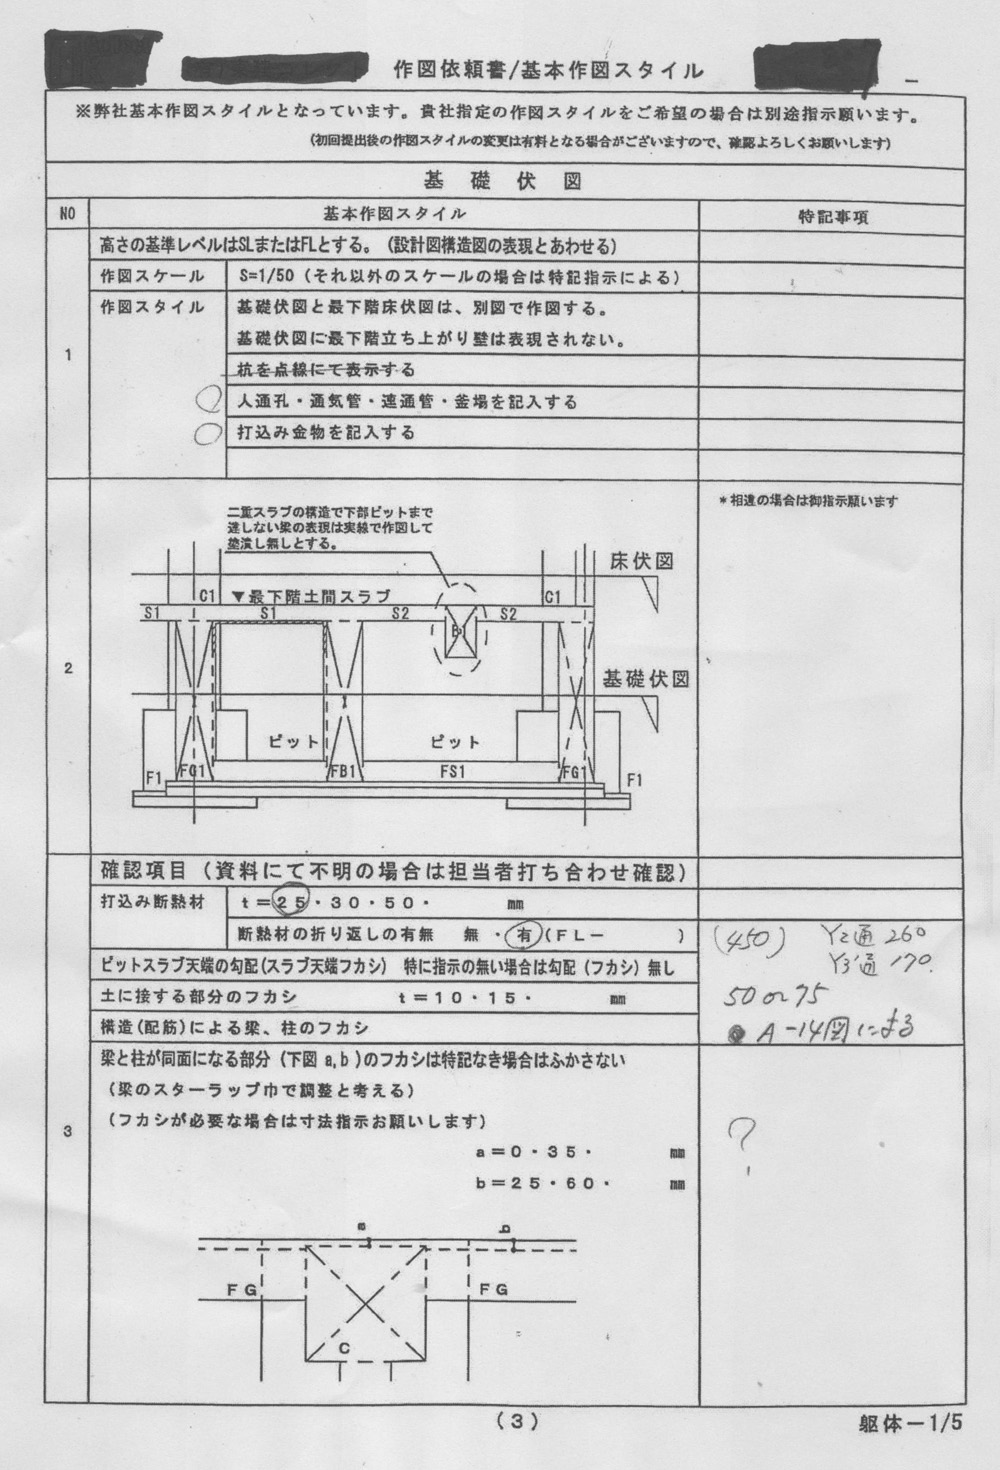 作図依頼書/基本作図スタイル
※弊社基本作図スタイルとなっています。貴社指定の作図スタイルをご希望の場合は別途指示願います。
(初回提出後の作図スタイルの変更は有料となる場合がございますので、確認よろしくお願いします)
基 礎 伏 図
NO 基本作図スタイル 特記事項
1
高さの基準レベルはSLまたはFLとする。(設計図構造図の表現とあわせる)
作図スケール S=1/50 (それ以外のスケールの場合は特記指示による)
作図スタイル 基礎伏図と最下階床伏図は、別図で作図する。
基礎伏図に最下階立ち上がり壁は表現されない。
杭を点線にて表示する
人通孔・通気管・連通管・釜場を記入する
打込み金物を記入する
2
*相違の場合は御指示願います
二重スラブの構造で下部ピットまで
達しない梁の表現は実線で作図して
塗潰し無しとする。
床伏図
C1 ▼最下階土間スラブ C1
S1 S1 S2 S2
B1
基礎伏図
ピット ピット
F1 FG1 FB1 FS1 FG1 F1
3
確認項目 (資料にて不明の場合は担当者打ち合わせ確認)
打込み断熱材 t=25・30・50・ mm
断熱材の折り返しの有無 無・有(FL− ) (450) Y2通 260
Y3'通 170.
ピットスラブ天端の勾配(スラブ天端フカシ) 特に指示の無い場合は勾配 (フカシ) 無し
土に接する部分のフカシ t=10・15・ mm 50 or 75
構造(配筋)による梁、柱のフカシ A-14図による
梁と柱が同面になる部分 (下図 a,b )のフカシは特記なき場合はふかさない
(梁のスターラップ巾で調整と考える)
(フカシが必要な場合は寸法指示お願いします) ?
a=0・35・ mm
b=25・60・ mm
a b
FG FG
C
(3) 躯体−1/5